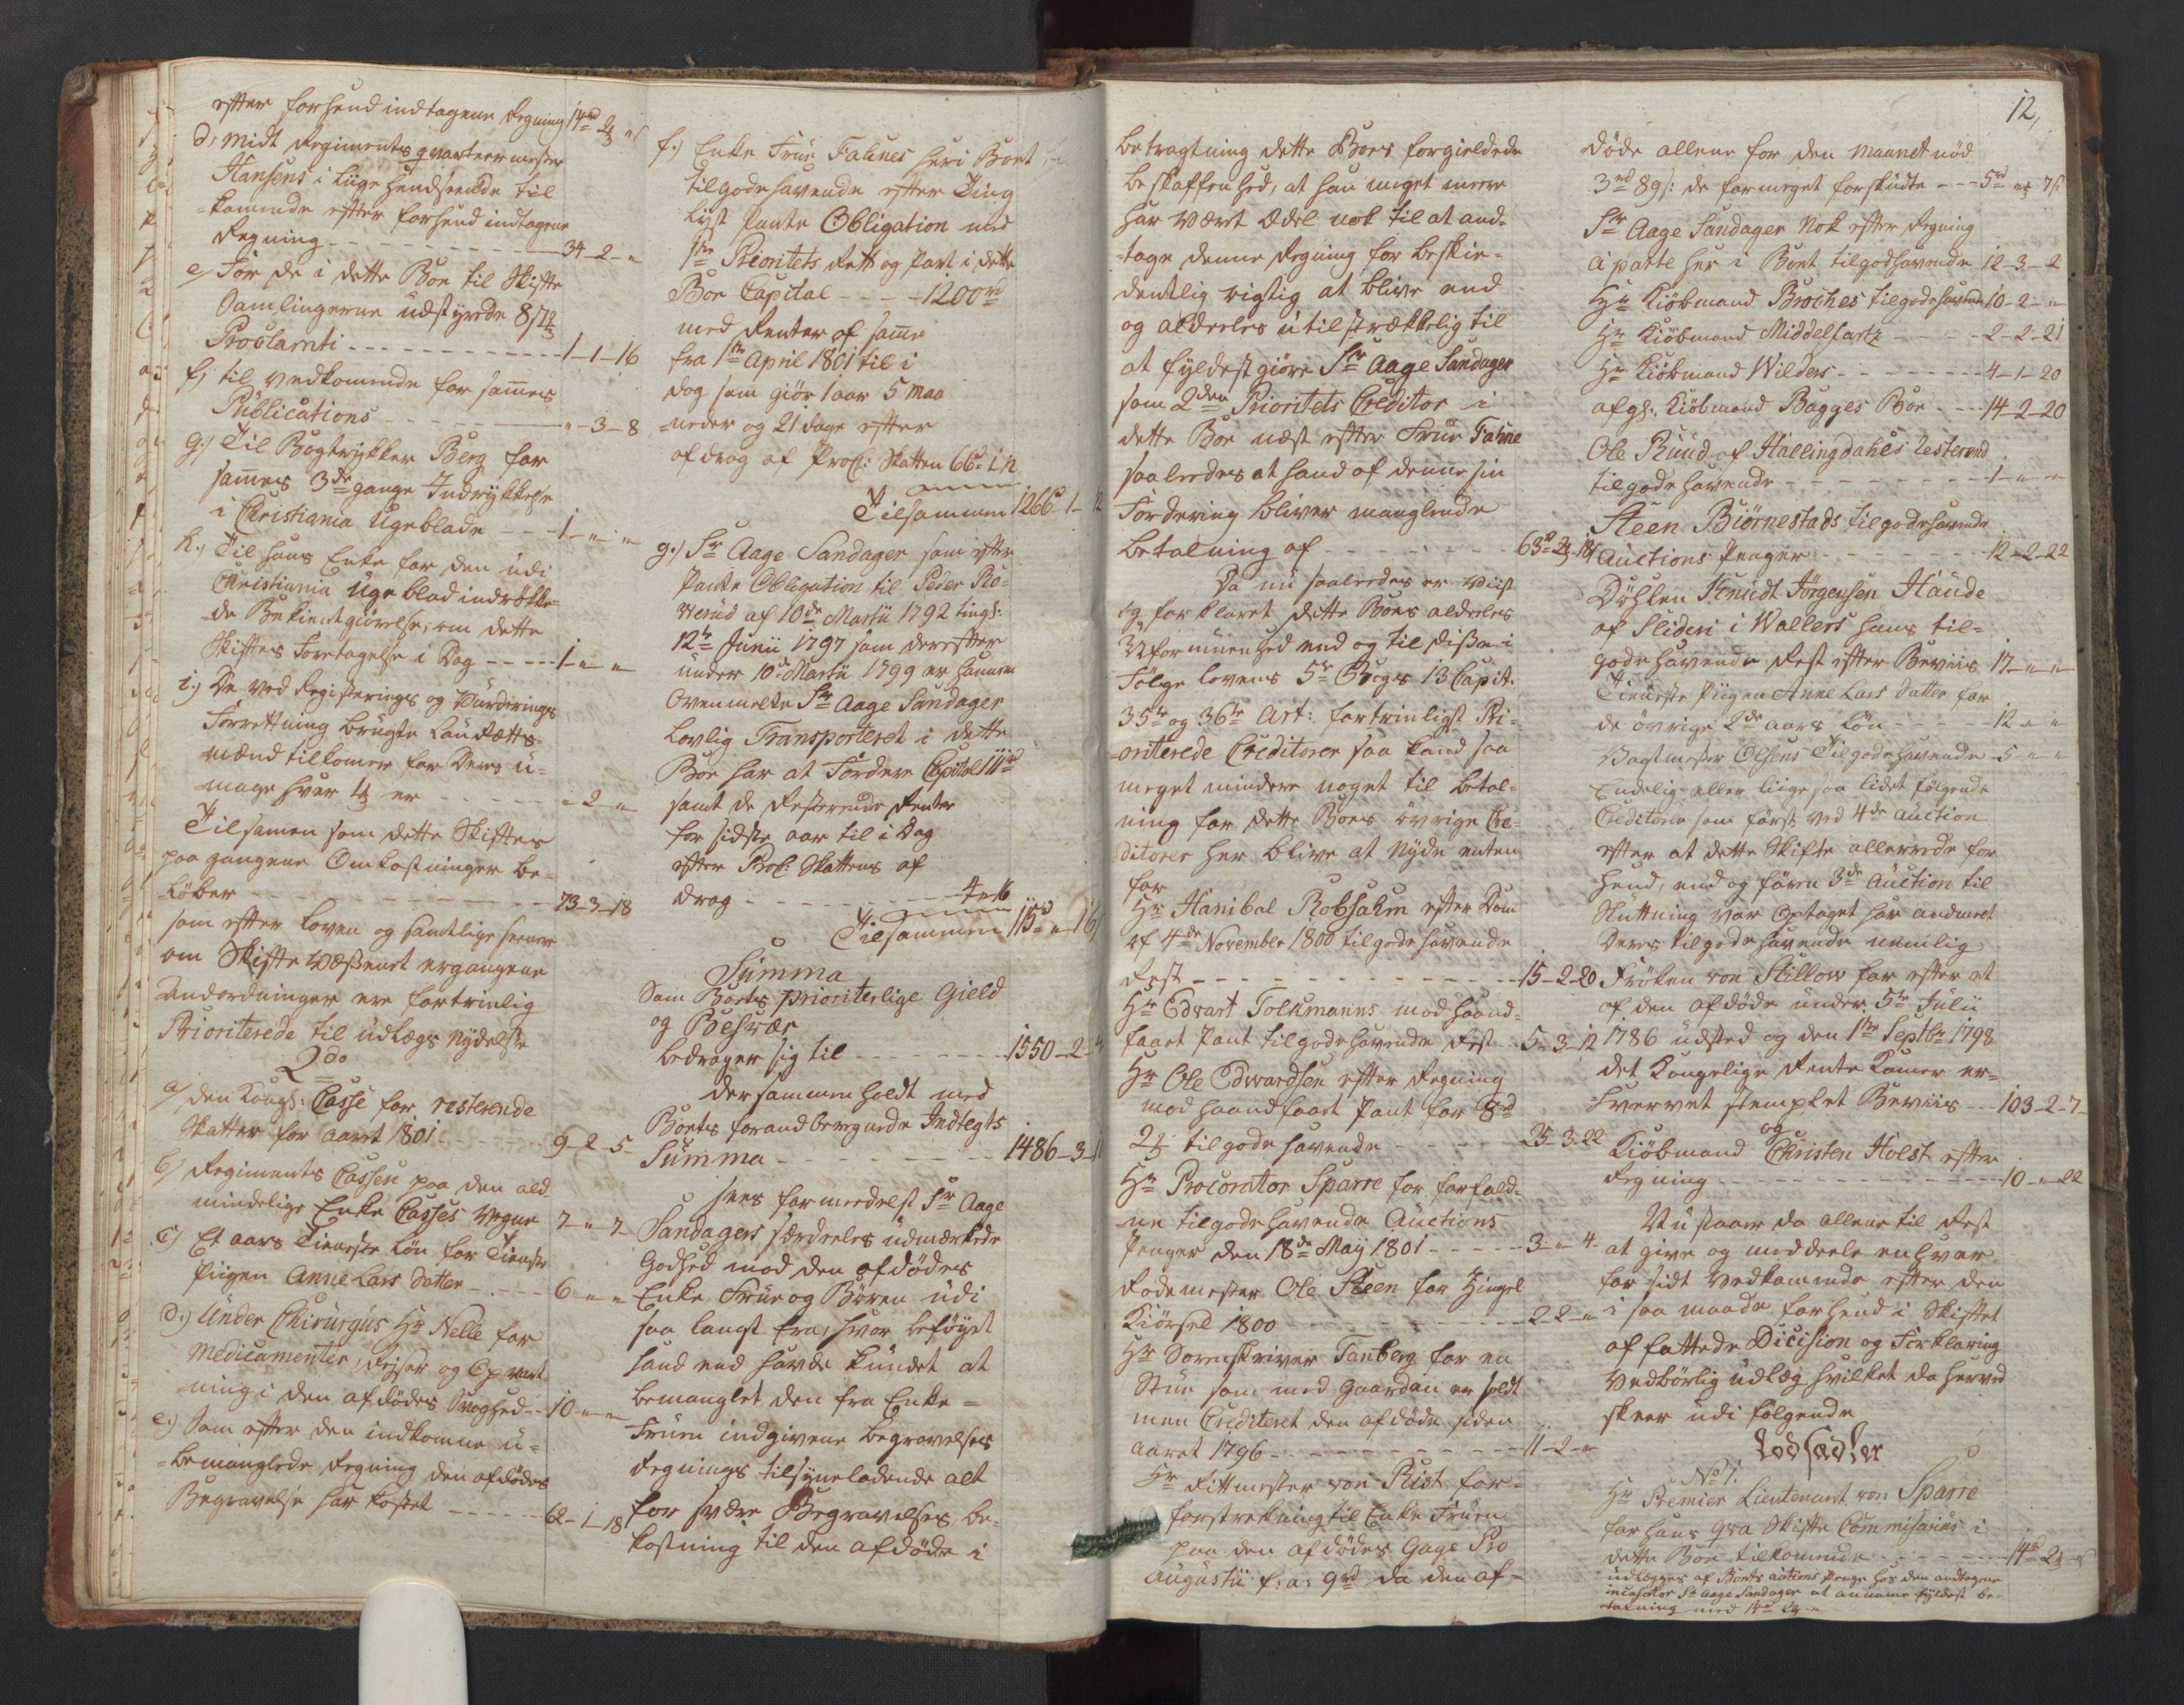 efter forhend indtagene Regning 14rd 2 "
d, Midt Regiments qvarteermester
Hansens i liige hendseende til
=komende efter forhend indtagene
Regning - - - 34-2-"
e, For de i dette Boe til Skifte
Samlingerne udstyrede
Proclamti - - - 1-1-16
f, til vedkomende for sammes
Publications - - - "-3-8
g.) Til Bogtrykker Berg for
sammes 3de gange Indrykkelse
i Christiania Ugeblade - - - 1-"-"
h.) Til hans Enke for den udi
Christiania Uge blad indrykke-
de Bekientgiörelse, om dette
Skiftes Foretagelse i Dag - - - 1-"-"
i.) De ved Registerings og Vurderings
Forretning brugte Laugrætts-
mænd tilkomer for Deres u-
mage hver 1 er - - - "-2-"
Tilsamen som dette Skiftes
paa gangene Omkostninger be-
löber - - - 73-3-18
som efter loven og samtlige senere
om Skifte væsenet ergangene
Andordninger ere fortrinlig
Prioriterede til udlægs nydelse
2do
a, den Kongl: Casse for resterende
Skatter for aaret 1801 - - - 9-2-5
b, Regiments Cassen paa den ald
mindelige Enke Casses vegne 7-"-7
c, Et aars Tieneste Lön for Tieneste
Piigen Anne Lars Datter - - - 6-"-"
d.) Under Chirurgus Hr Nelle for
Medicamenter, Reiser og Opvart-
ning i den afdödes Svaghed - - 10-"-"
e.) Som efter den indkomne u-
=bemanglede Regning den afdödes
Begravelse har kostet - - - 62-1-18
f.) Enke Frue Fahnes her i Boet
tilgodehavende efter Ting
lyst Pante Obligation med
1ste Prioritets Rett og Pant i dette
Boe Capital - - - 1200rd
med Renter af samme
fra 1ste April 1801 til i
dag som giör 1 aar 5 maa
=neder og 21 dage efter
afdrag af Proc: Skatten 66rd 1 12
Tilsammen 1266rd 1-12
g.) Sr Aage Sandager som efter
Pante Obligation til Peder Ro-
verud af 10de Martii 1792 tingl:
12te Junii 1797 som derefter
under 10de Martii 1799 er hannem
Ovenmelte Sr Aage Sandager
Lovlig Transporteret i dette
Boe har at Fordre Capital 111rd
samt de Resterende Renter
for sidste aar til i Dag
efter Proc: Skattens af
drag - - - 4-"-16
Tilsammen 115rd "-16
Summa
Som Boets prioriterlige Gield
og Besvær
bedrager sig til - - - 1550-2-4
der sammen holdt med
Boets foranberegnede Indtegts
Summa - - - 1486-3-
sees formedelst Sr Aage
Sandagers særdeles udmærkede
Godhed mod den afdödes
Enke Frue og Börn udi
saa langt fra, hvor beföyet
hand end havde kundet at
bemanglet den fra Enke-
Fruen indgivene begravelses
Regnings tilsyneladende alt
for svære Begravelses be-
kostning til den afdöde i
12,
betragtning dette Boes forgieldede
beskaffenhed, at han meget mere
har været ædel nok til at and-
=tage denne Regning for beskie-
dentlig rigtig at blive end
og aldeles utilstrækkelig til
at fyldestgiöre Sr Aage Sandager
som 2den Prioritets Creditor i
dette Boe næst efter Frue Fahne
saaledes at hand af denne sin
Fordering bliver manglende
betalning af - - - 63rd 2 18
Da nu saaledes er viist
og forklaret dette Boes aldeles
Uformuenhed end og til disse i
Fölge lovens 5te Bogs 13 Capit.
35te og 36te Art: fortrinligst Pri-
oriterede Creditorer saa kand saa
meget mindre noget til betal-
ning for dette Boes övrige Cre-
ditorer her blive at Nyde enten
for
Hr Hanibal Robsahm efter Dom
af 4de November 1800 tilgodehavende
Rest - - - 15-2-20
Hr Edvart Tolkmanns mod haand-
faaet Pant tilgodehavende Rest - - 5-3-12
Hr Ole Edwardsen efter Regning
mod haandfaaet Pant for 8rd
2 tilgode havende - - - 25-3-22
Hr Procorator Sparre for forfald-
ne tilgodehavende Auctions
Penger den 18de May 1801 - - - 3-"-4
Rodemester Ole Steen for
Kiörsel 1800 - - - 2-2-"
Hr Sorenskriver Tanberg for en
Stue som med Gaarden er solgt
men Crediteret den afdöde siden
aaret 1796 - - - 11-2-"
Hr Rittmester von Rist for-
forstrekning til Enke Fruen
paa den afdödes Gage Pro
Augustii f: a: 9rd da den af-
döde allene for den Maanet nöd
3rd 89s: de formeget forskudte - - - 5rd " 7s:
Sr Aage Sandager Nok efter Regning
a parte her i Boet tilgodhavende 12-3-2
Hr Kiöbmand Broches tilgodehavende 10-2-"
Hr Kiöbmand Middelfartz - - - 2-2-21
Hr Kiöbmand Wilders - - - 4-1-20
afgl: Kiöbmand Bagges Boe - - - 14-2-20
Ole Ruud af Hallingdahls Resterend
tilgodehavende - - - 1-"-"
Steen Biörnestads tilgodehavende
Auctions Penger - - - 12-2-22
Döhlen Knudt Jörgensen Haude
af Slidre i Wallers hans til-
godehavende Rest efter Beviis 17-"-"
Tieneste Piigen Anne Lars Datter for
de övrige 2de aars Lön - - - 12-"-"
Vagtmester Olsens Tilgodehavende - 5-"-"
Endelig eller liige saa lidet fölgende
Creditorer som först ved 4de Auction
efter at dette Skifte allerrede for
hend, end og foren 3de Auction til
Sluttning var Optaget har andmeldt
Deres tilgodehavende nemlig
Fröken von Stillow for efter at
af den afdöde under 5te Julii
1786 udsted og den 1ste Septbr 1798
det Kongelige Rente Kamer er-
hvervet stemplet Beviis - - - 103-2-7
og
Kiöbmand Christen Holst efter
Regning - - - 10-"-22
Nu staaer da allene til Rest
at give og meddeele enhver
for sidt vedkomende efter den
i saa maade forhend i Skiftet
affattede Dicision og Forklaring
vedbörlig udlæg hvilket da herved
skeer udi fölgende
Lodsædler
No 1.
Hr Premier Lieutenant von Sparre
for hans qva Skifte Commisarius i
dette Boe tilkomende - - - 14rd 2 "
udlægges af Boets auctions Penge hos den andtagne
incasator Sr Aage Sandager at annamme fyldest be-
talning med 14rd 2 "